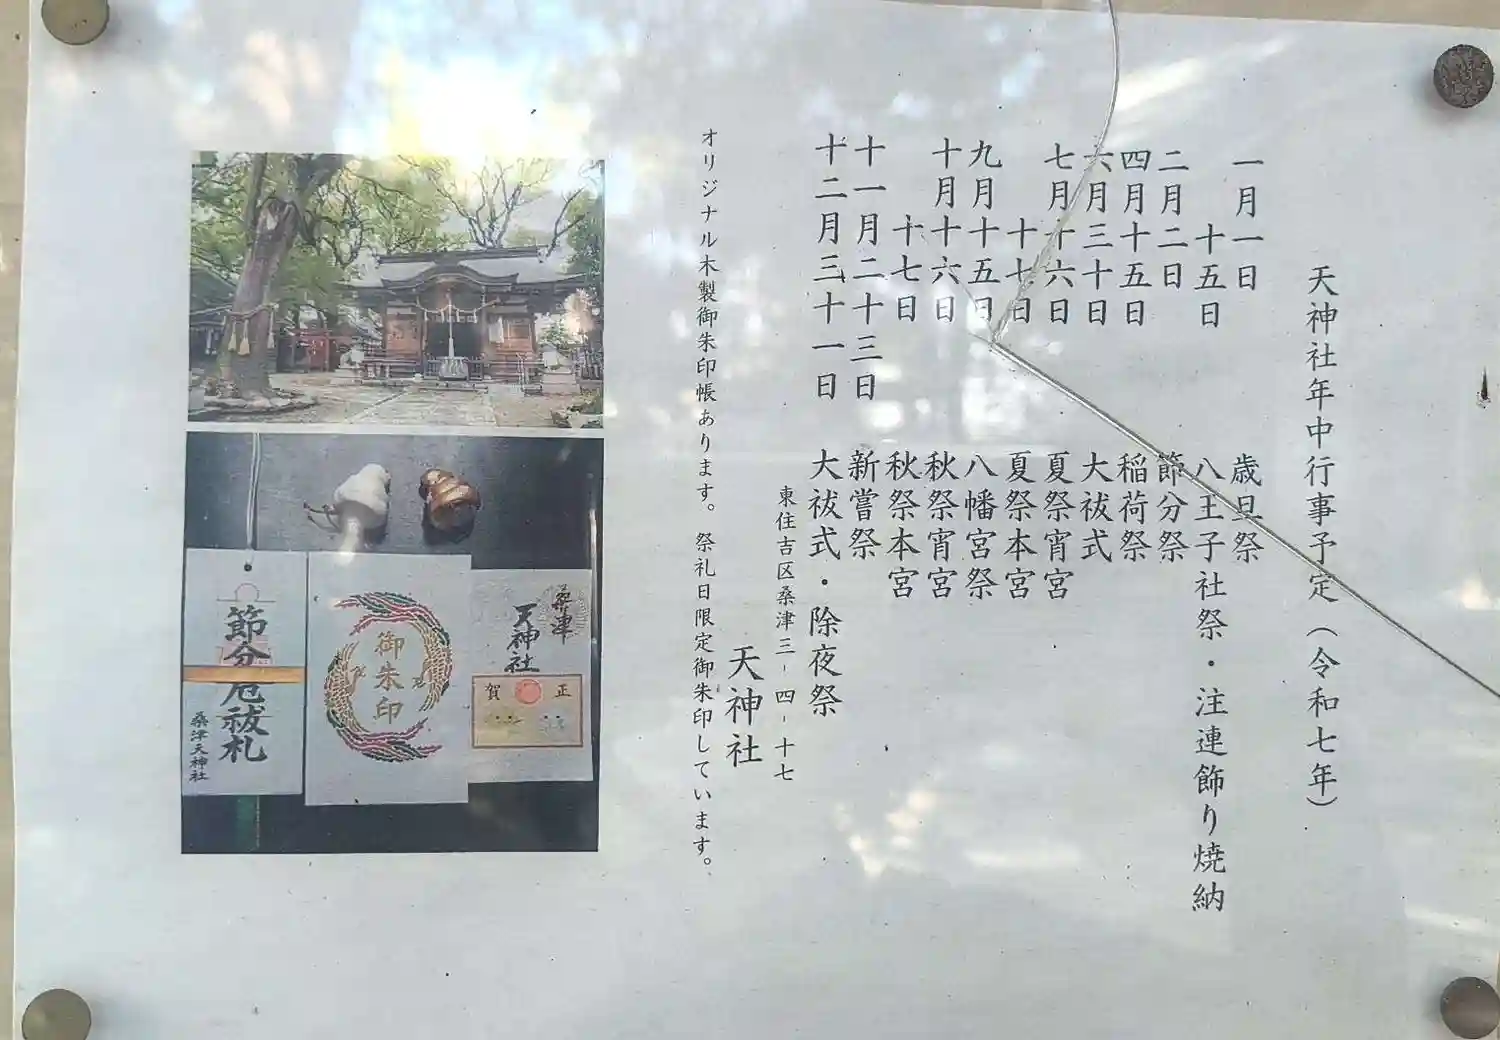 天神社年中行事予定（令和七年）
一月一日　歳旦祭
十五日　八王子社祭・注連飾り焼納
二月二日　節分祭
四月十五日　稲荷祭
六月三十日　大祓式
七月十六日　夏祭宵宮
十七日　夏祭本宮
九月十五日　八幡宮祭
十月十六日　秋祭宵宮
十七日　秋祭本宮
十一月二十三日　新嘗祭
十二月三十一日　大祓式・除夜祭
東住吉区桑津三-四-十七
天神社
オリジナル木製御朱印帳あります。祭礼日限定御朱印しています。
桑津
天神社
正
賀
御朱印
節分厄祓札
桑津天神社